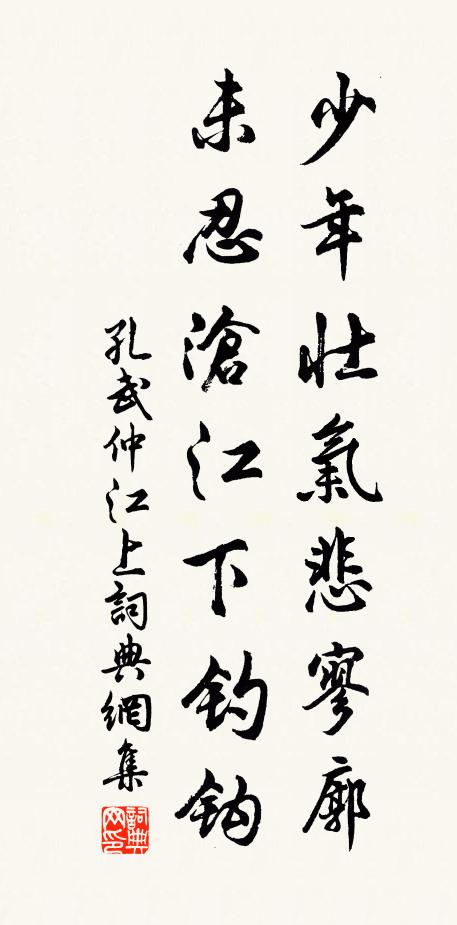 少年壯氣悲寥廓
未忍滄江下钓钩
孔武仲江上詞典網集
詞典
网印